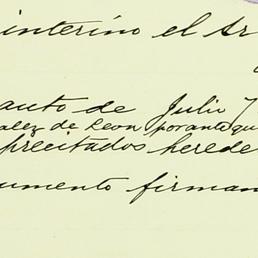 interino el Sr
auto de Julio 7
alez de Leon por ante qu
precitados herede
umento firman